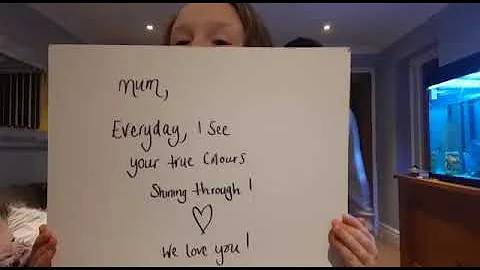 Mum,
Everyday, I see
your true colours
Shining through!
We love you!